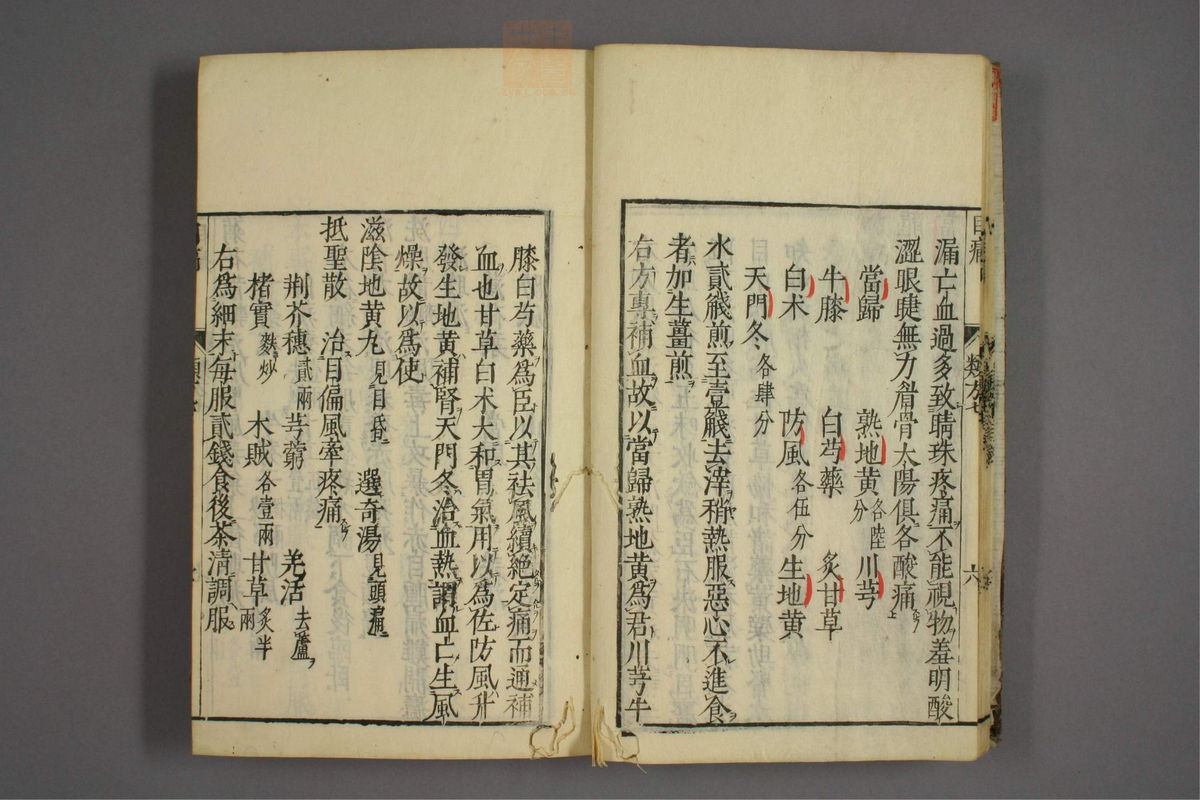 漏亡血過多致睛珠疼痛不能視物羞明酸
澀眼睫無力眉骨太陽俱各酸痛
當歸 熟地黄各陸分 川芎
牛膝 白芍藥 炙甘草
白术 防風各伍分 生地黄
天門冬各肆分
水貳觥煎至壹觥去滓稍熱服惡心不進食
者加生薑煎
右方專補血故以當歸熟地黄爲君川芎牛
膝白芍藥爲臣以其祛風續絶定痛而通補
血也甘草白术大和胃氣用以爲佐防風升
發生地黄補腎天門冬治血熱謂血亡生風
燥故以爲使
滋陰地黄丸見目昏 選奇湯見頭痛
抵聖散 治目偏風牽疼痛
荆芥穗貳兩 芎藭 羌活去蘆
楮實麩炒 木賊各壹兩 甘草炙半兩
右爲細末每服貳錢食後茶清調服